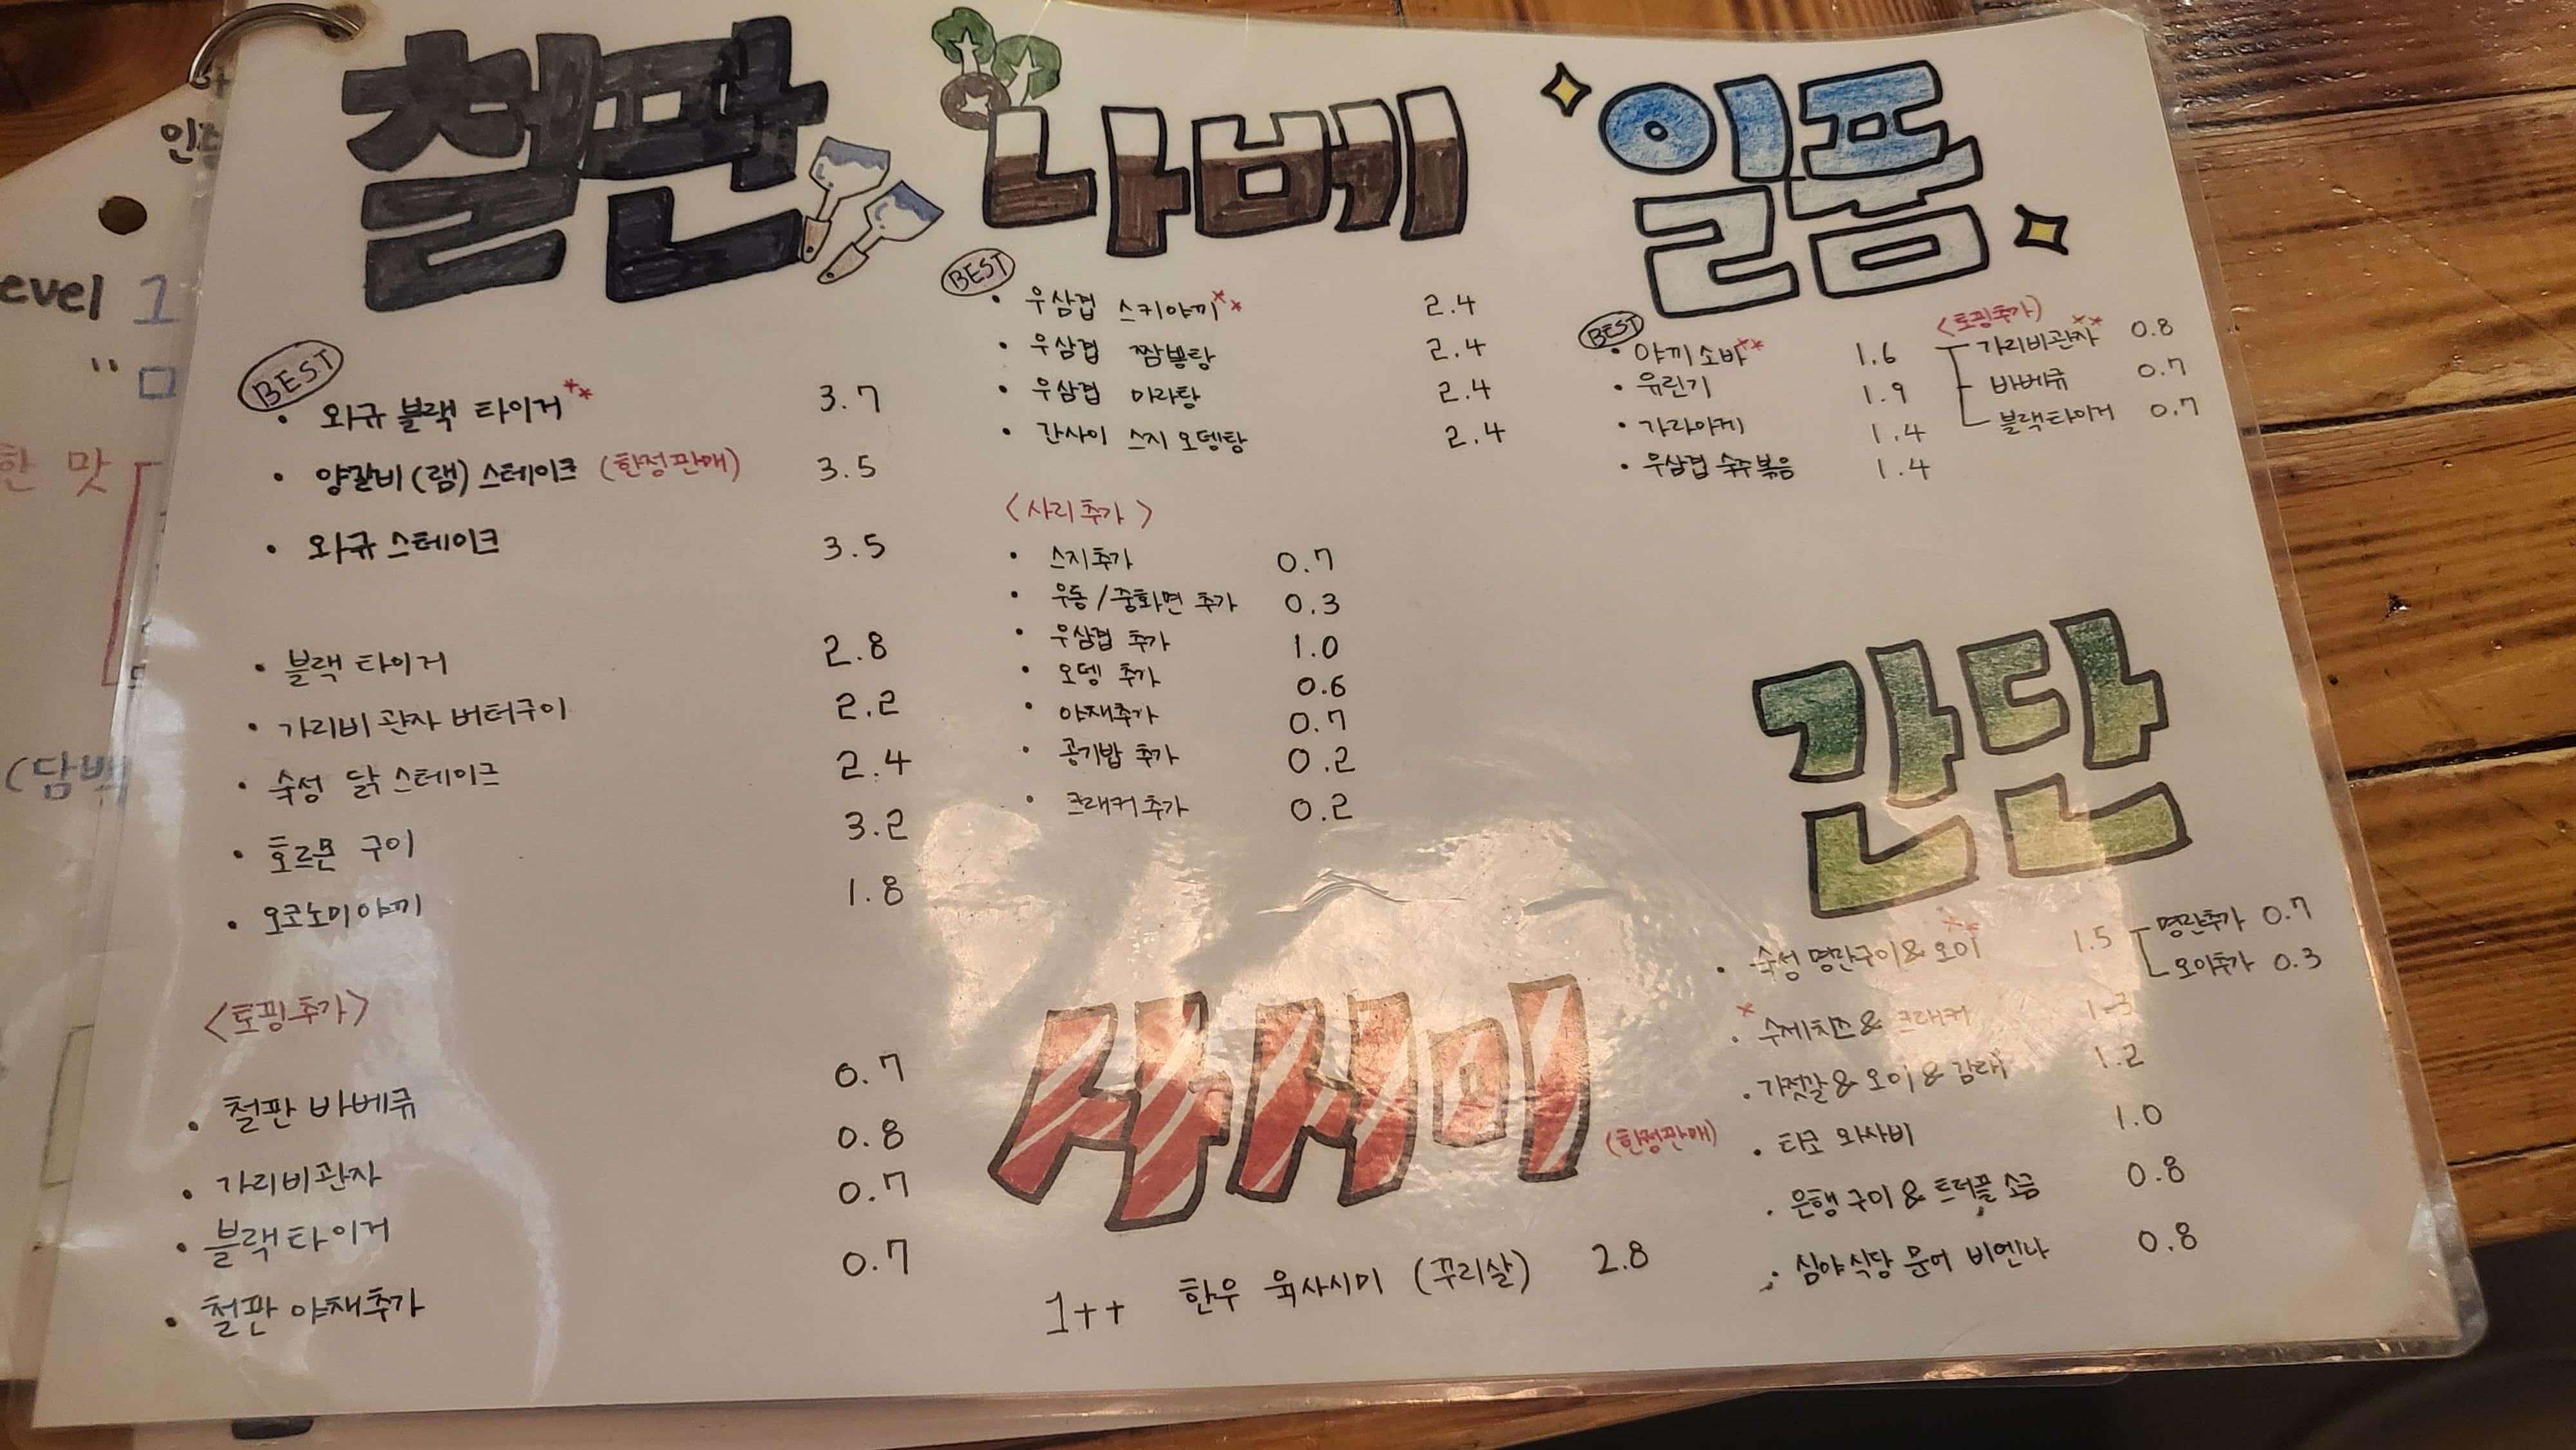 철판
BEST
· 와규 블랙 타이거** 3.7
· 양갈비(램) 스테이크 (한정판매) 3.5
· 와규 스테이크 3.5
· 블랙 타이거 2.8
· 가리비 관자 버터구이 2.2
· 숙성 닭 스테이크 2.4
· 호르몬 구이 3.2
· 오코노미야끼 1.8
<토핑추가>
· 철판 바베큐 0.7
· 가리비관자 0.8
· 블랙타이거 0.7
· 철판 야채추가 0.7
나베
BEST
· 우삼겹 스키야끼** 2.4
· 우삼겹 짬뽕탕 2.4
· 우삼겹 마라탕 2.4
· 간사이 스지 오뎅탕 2.4
<사리추가>
· 스지추가 0.7
· 우동/중화면 추가 0.3
· 우삼겹 추가 1.0
· 오뎅 추가 0.6
· 야채추가 0.7
· 공기밥 추가 0.2
· 크래커 추가 0.2
사시미
(한정판매)
1++ 한우 육사시미 (꾸리살) 2.8
일품
BEST
· 야끼소바** 1.6
· 유린기 1.9
· 가라아게 1.4
· 우삼겹 숙주볶음 1.4
<토핑추가>
가리비관자** 0.8
바베큐 0.7
블랙타이거 0.7
간단
· 숙성 명란구이 & 오이** 1.5
명란추가 0.7
오이추가 0.3
* · 수제치즈 & 크래커 1.3
· 가젓갈 & 오이 & 감태 1.2
· 타코 와사비 1.0
· 은행 구이 & 트러플 소금 0.8
· 심야식당 문어 비엔나 0.8
evel 1
" ㅁ
한 맛
(담백